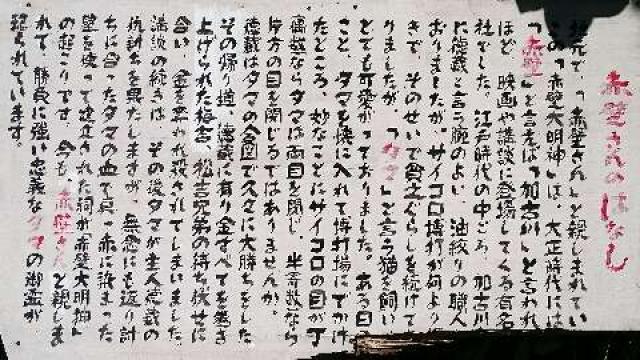 赤壁さんのはなし
地元で、「赤壁さん」と親しまれてい
この「赤壁大明神」は、大正時代には
「赤壁」と言えば「加古川」と言われ
ほど、映画や講談に登場してくる有名
社でした。江戸時代の中ごろ、加古川
に徳蔵と言う腕のよい、油絞りの職人
おりましたが、サイコロ博打が何より
きで、そのせいで貧乏ぐらしを続けて
りましたが、「タマ」と言う猫を飼い
とても可愛がっておりました。ある日
こと、タマを懐に入れて博打場にでかけ
たところ、妙なことにサイコロの目が丁
偶数ならタマは両目を閉じ、半奇数なら
片方の目を閉じるではありませんか。
徳蔵はタマの合図で久々に大勝ちをした
その帰り道、徳蔵に有り金すべてを巻き
上げられた梅吉、松吉兄弟の待ち伏せに
合い、金を奪われ殺されてしまいました。
講談の続きは、その後タマが主人徳蔵の
仇討ちを果たしますが、無念にも返り討
ちに合ったタマの血で真っ赤に染まった
壁を使って建立された祠が赤壁大明神」
の起こりです。今も、赤壁さんと親しま
れて、勝負に強い忠義なタマの御霊が
祀られています。